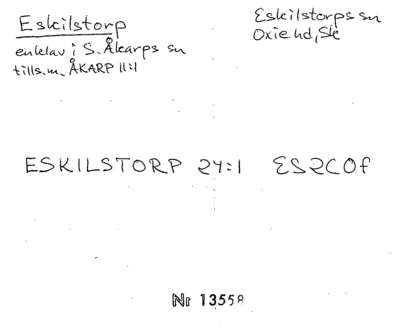 Eskilstorp
enklav i S. Åkarps sn
tills.m. ÅKARP 11:1
Eskilstorps sn
Oxie hd, Sk
ESKILSTORP 24:1 ES2COf
Nr 13558